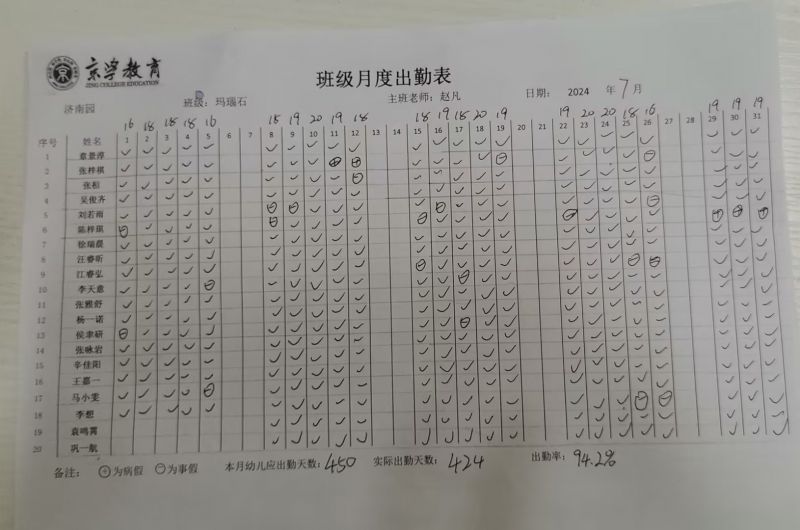 京学教育
JING COLLEGE EDUCATION
班级月度出勤表
济南园 班级：玛瑙石 主班老师：赵凡 日期： 2024 年 7 月
16 18 18 18 16 18 19 20 19 18 18 19 18 20 19 19 20 20 18 16 19 19 19
序号 姓名 1 2 3 4 5 6 7 8 9 10 11 12 13 14 15 16 17 18 19 20 21 22 23 24 25 26 27 28 29 30 31
1 章景淳
2 张梓祺
3 张柏
4 吴俊齐
5 刘若雨
6 陈梓琪
7 徐瑞晨
8 汪睿昕
9 江睿弘
10 李天意
11 张雅舒
12 杨一诺
13 侯聿研
14 张咏岩
15 辛佳阳
16 王嘉一
17 马小雯
18 李想
19 袁鸣霄
20 巩一航
备注： ⊕为病假 ⊖为事假 本月幼儿应出勤天数：450 实际出勤天数：424 出勤率：94.2%